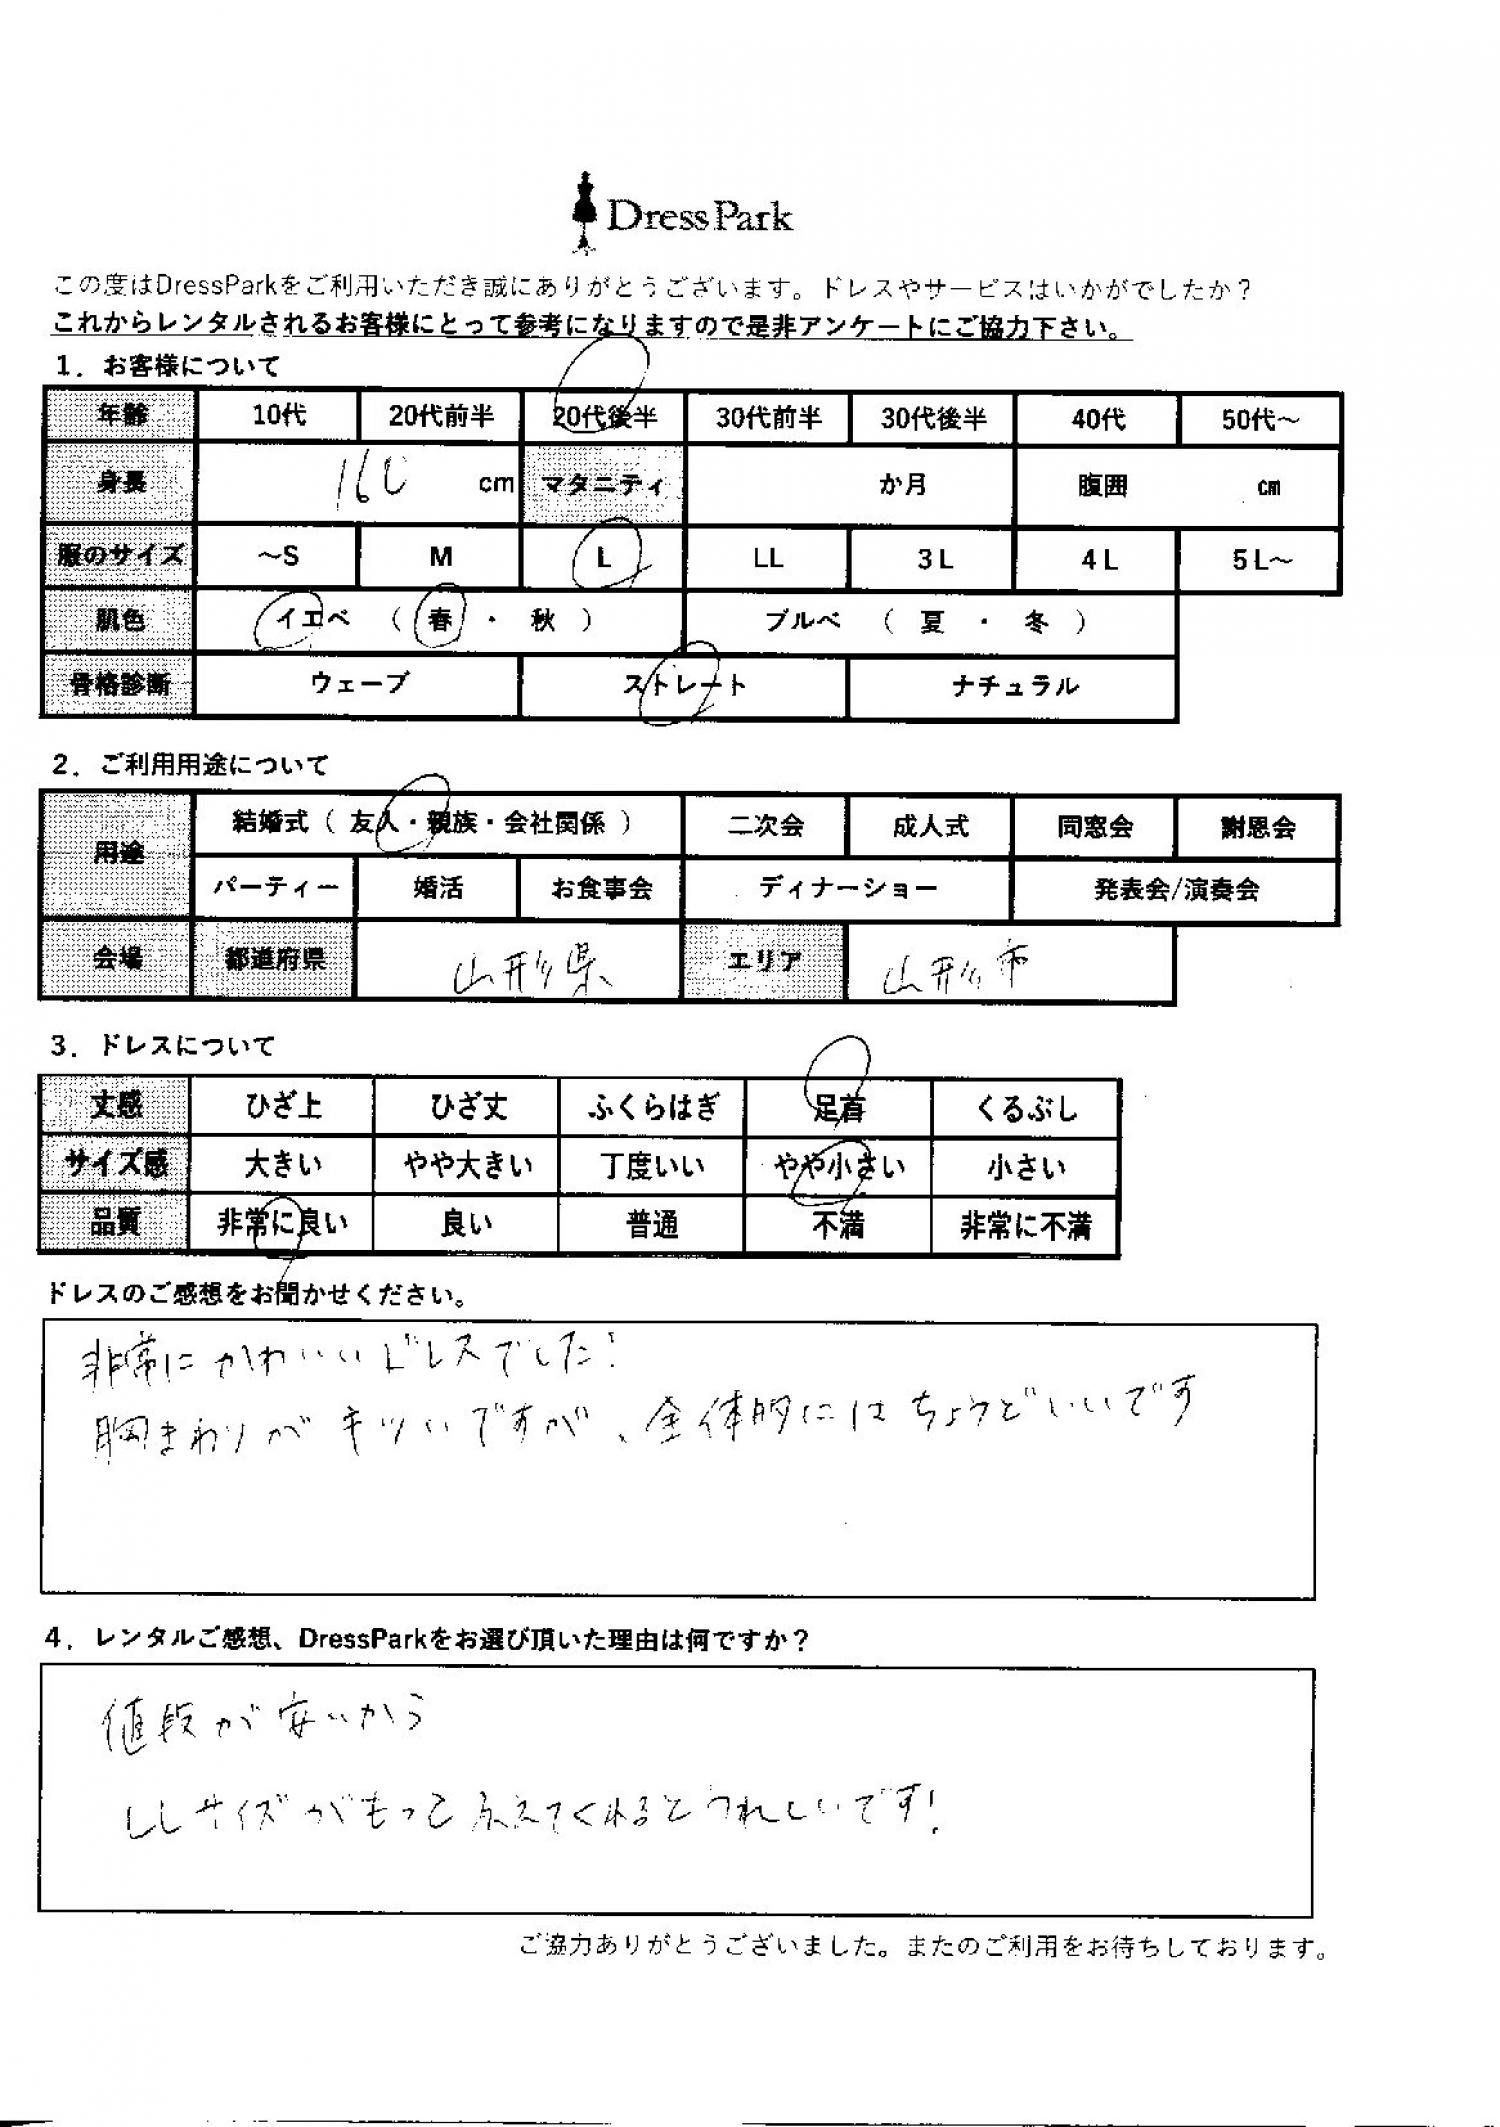 DressPark
この度はDressParkをご利用いただき誠にありがとうございます。ドレスやサービスはいかがでしたか？
これからレンタルされるお客様にとって参考になりますので是非アンケートにご協力下さい。
1．お客様について
年齢 10代 20代前半 20代後半 30代前半 30代後半 40代 50代～
身長 160 cm マタニティ か月 腹囲 cm
服のサイズ ～S M L LL 3L 4L 5L～
肌色 イエベ （ 春 ・ 秋 ） ブルベ （ 夏 ・ 冬 ）
骨格診断 ウェーブ ストレート ナチュラル
2．ご利用用途について
用途 結婚式（ 友人・親族・会社関係 ） 二次会 成人式 同窓会 謝恩会
パーティー 婚活 お食事会 ディナーショー 発表会/演奏会
会場 都道府県 山形県 エリア 山形市
3．ドレスについて
丈感 ひざ上 ひざ丈 ふくらはぎ 足首 くるぶし
サイズ感 大きい やや大きい 丁度いい やや小さい 小さい
品質 非常に良い 良い 普通 不満 非常に不満
ドレスのご感想をお聞かせください。
非常にかわいいドレスでした!
胸まわりがキツいですが、全体的にはちょうどいいです
4．レンタルご感想、DressParkをお選び頂いた理由は何ですか？
値段が安いから
LLサイズがもっとふえてくれるとうれしいです!
ご協力ありがとうございました。またのご利用をお待ちしております。